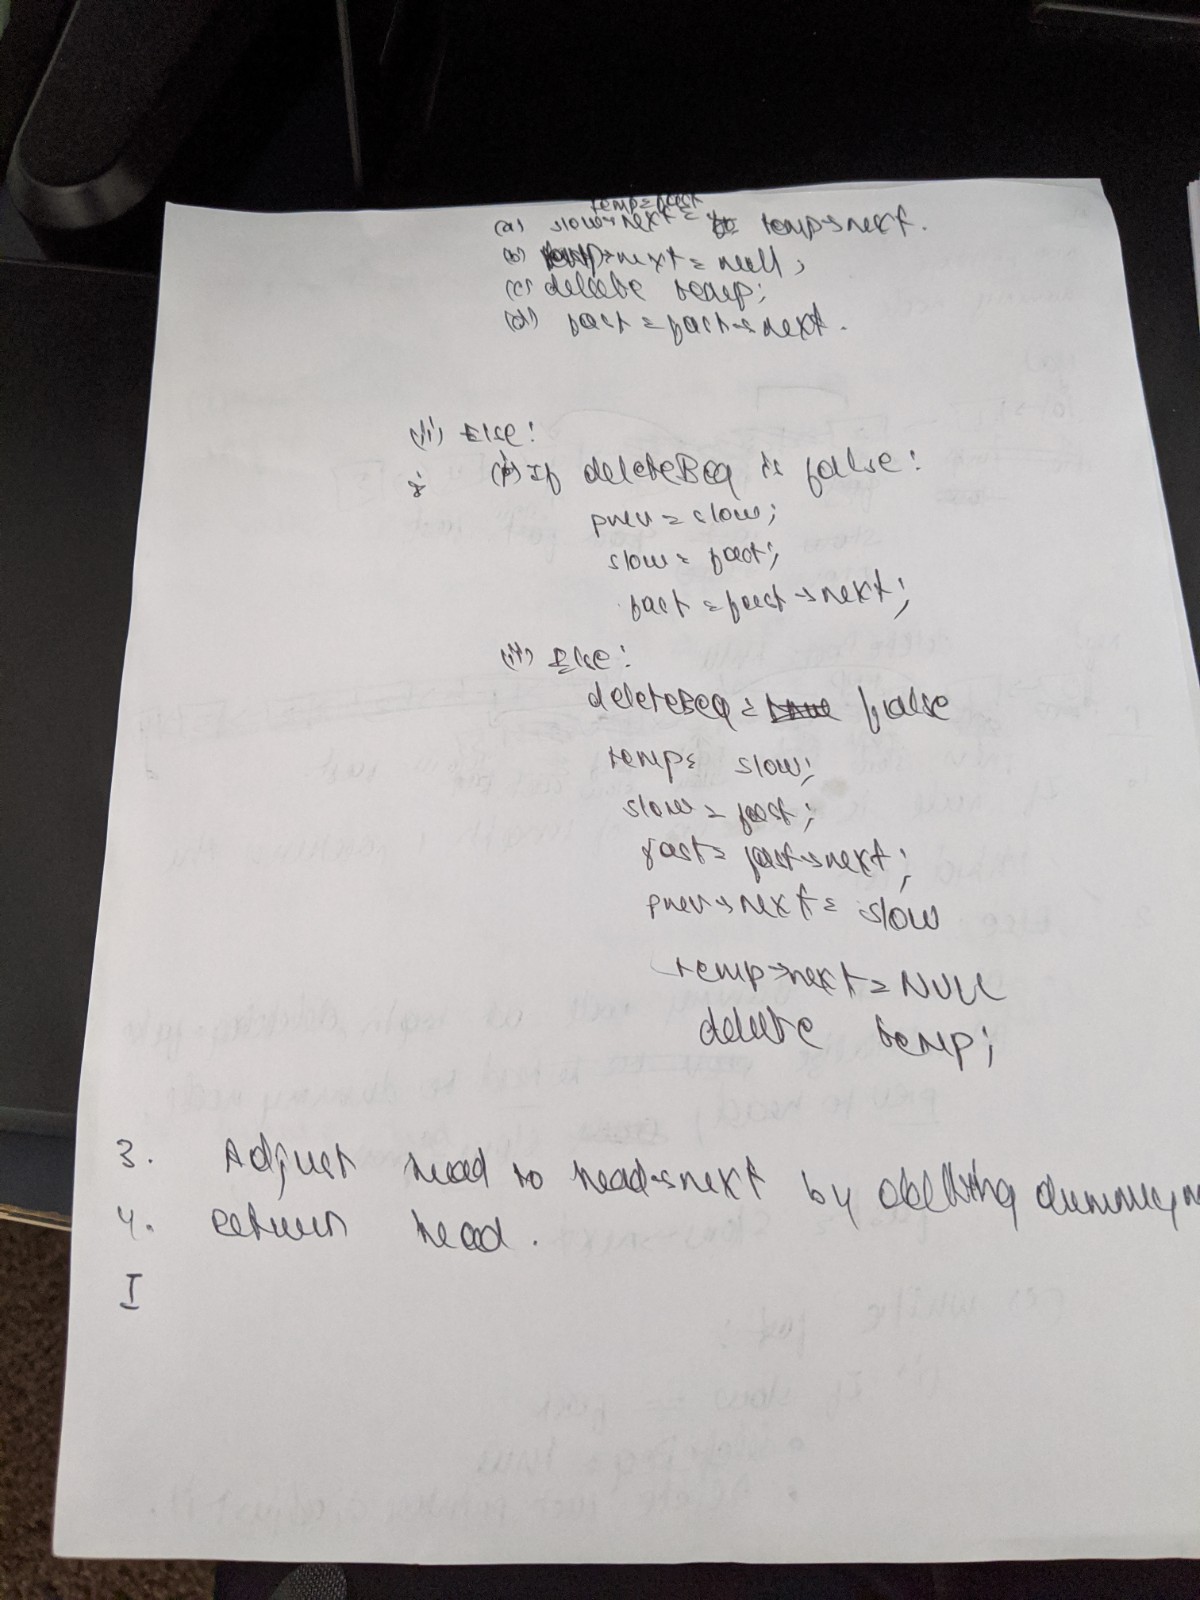 temp=fast
(a) slow→next = temp→next.
(b) temp→next = null;
(c) delete temp;
(d) fast = fast→next.
(ii) Else:
(i) If deleteBeg is false:
prev = slow;
slow = fast;
fast = fast→next;
(ii) Else:
deleteBeg = false
temp= slow;
slow = fast;
fast= fast→next;
prev→next = slow
temp→next = NULL
delete temp;
3. Adjust head to head→next by deleting dummy
4. return head.
I